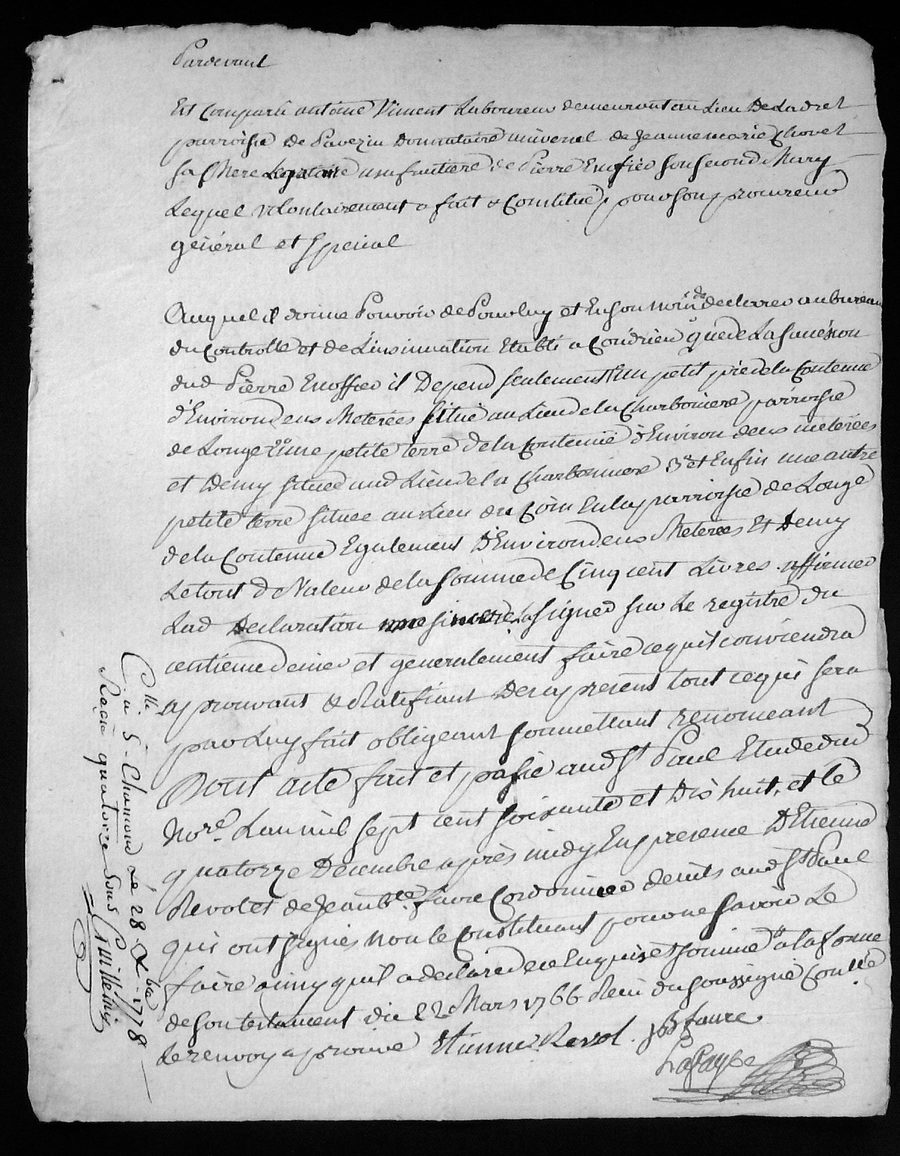 Pardevant
Est Comparû antoine Viment Laboureur demeurant au Lieu De Ladret
parroisse De Pavezin Donnataire universel de Jeanne marie Chovet
Sa Mere usufruitiere de Pierre Enofier son second Mary
Lequel volontairement a fait & Constitué, pour son, procureur
général et special
Auquel il donne Pouvoir de Pour luy et En son nom declarer au bureau
du Controlle et de L'insinuation Etabli a Condrieu que de La Succession
dud Pierre Enoffier il Depend seulement Un petit pré de la Contenue
d'Environ deux Meterées situé au Lieu de la Charboniere parroisse
de Longe 2° une petite terre de la Contenue d'Environ deux meterées
et Demy située aud Lieu de la Charbonniere 3° et Enfin une autre
petite terre située au Lieu du Coin En lad parroisse de Longe
de la Contenue Egalement d'Environ deux Meterées Et Demy
Le tout De Valeur de la somme de Cinq cent Livres affirmer
Lad Declaration sincere la signer sur Le registre du
centieme denier et generalement faire ce quil conviendra
approuvant & Ratifiant Des apresent tout ce qui sera
par Luy fait obligeant soumettant renonceant
Dont acte fait et passé aud St Paul Etude dud
Nore. L'an mil sept cent soixante et Dix huit, et le
quatorze Decembre après midy En presence D'Etienne
Revol et de Jean bte. faure Cordonnier de.. aud St Paul
qui ont signés non le Constituant pour ne savoir Le
faire ainsy quil a declaré de ce Enquis et sommé a la forme
de son testament du 22 Mars 1766 Reçu du soussigné
Le renvoy approuvé Etienne Revol. JB faure.
Lafayße
Clle. à St Chamond Le 28 Xbre 1778
Reçu quatorze sous Guillemin